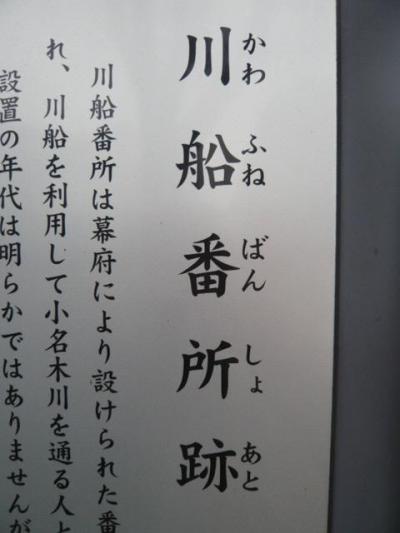 川船番所跡
かわふねばんしょあと
川船番所は幕府により設けられた番
れ、川船を利用して小名木川を通る人と
設置の年代は明らかではありませんが